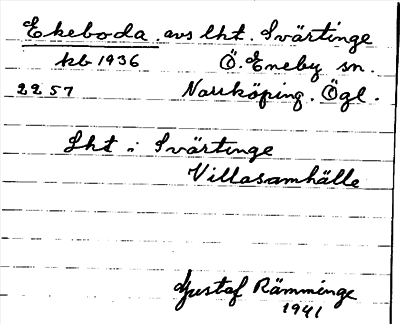 Ekeboda. avs lht. Svärtinge
kb 1936 Ö. Eneby sn.
22 57 Norrköping. Ögl.
Lht i Svärtinge
Villasamhälle
Gustaf Rämminge
1941